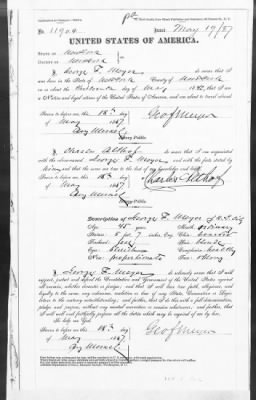 No. 11904 Issued May 19/87
UNITED STATES OF AMERICA.
STATE OF New York
COUNTY OF New York
I, George F. Meyer do swear that I was
born in the State of New York County of New York
on or about the day of May 1842, that I am
a Native and loyal citizen of the United States of America, and am about to travel abroad.
Sworn to before me, this 18th day
of May 1887 Geo F Meyer
Notary Public.
I, Charles Althof do swear that I am acquainted
with the above-named George F. Meyer and with the facts stated by
him, and that the same are true to the best of my knowledge and belief.
Sworn to before me, this 18th day
of May 1887 Charles Althof
Notary Public.
Description of George F. Meyer of N.Y. City
Age: 45 years Mouth: ordinary
Stature: 5 feet 7 inches, Eng. Chin:
Forehead: Hair:
Eyes: Complexion: healthy
Nose: proportionate Face:
I, George F. Meyer do solemnly swear that I will
support, protect and defend the Constitution and Government of the United States against
all enemies, whether domestic or foreign; and that I will bear true faith, allegiance, and
loyalty to the same, any ordinance, resolution or law of any State, Convention or Legislature
to the contrary notwithstanding; and further, that I do this with a full determination,
pledge and purpose, without any mental reservation or evasion whatsoever; and further, that
I will well and faithfully perform all the duties which may be required of me by law.
So help me God.
Sworn to before me, this 18th day
of May 1887 Geo F Meyer